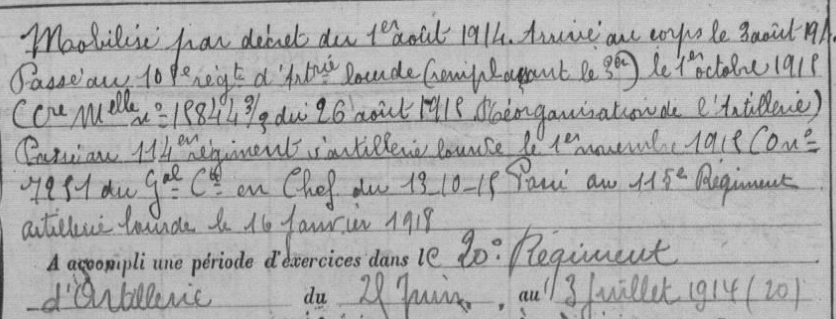 Mobilisé par décret du 1er août 1914. Arrivé au corps le 3 août 1914.
Passé au 108e régt d'Artrie lourde (remplaçant le 3e) le 1er octobre 1915
(Cre Melle no 15844 3/3 du 26 août 1915 Réorganisation de l'Artillerie)
Passé au 114e régiment d'artillerie lourde le 1er novembre 1915 (O no
7251 du Gal Ct en Chef du 13-10-15 Passé au 115e Régiment
artillerie lourde le 16 janvier 1918
A accompli une période d'exercices dans le 20e Régiment
d'Artillerie du 21 Juin, au 3 juillet 1914 (20)